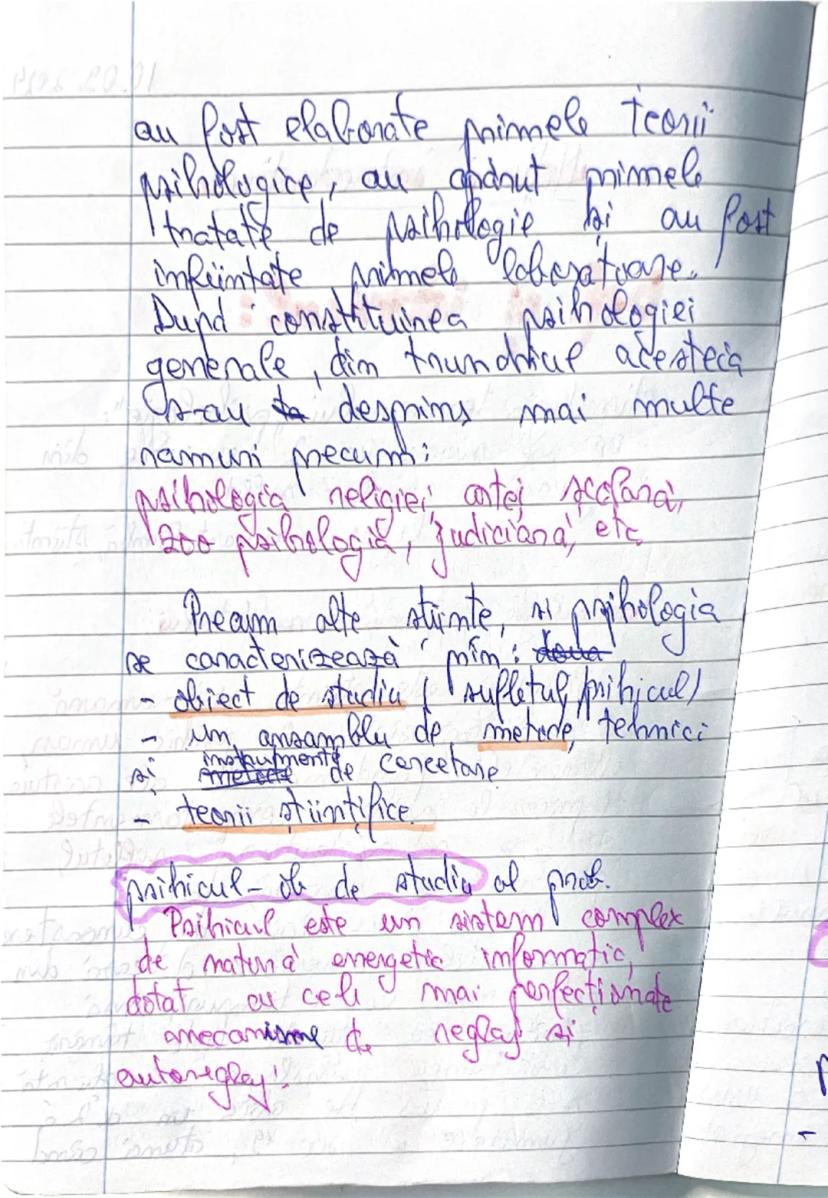 au fost elaborate primele teorii
psihologice, au apărut primele
tratate de psihologie și au fost
înființate primele laboratoare.
După constituirea psihologiei
generale, din trunchiul acesteia
s-au desprins mai multe
ramuri precum:
psihologia religiei, artei, școlară,
zoo psihologie, judiciară, etc.
Precum alte științe, și psihologia
se caracterizează prin: două
- obiect de studiu (sufletul, psihicul)
- un ansamblu de metode, tehnici
și metode instrumente de cercetare
- teorii științifice.
psihicul - ob de studiu al psih.
Psihicul este un sistem complex
de natură energetic informatic,
dotat cu cele mai perfecționate
mecanisme de reglaj și
autoreglaj.